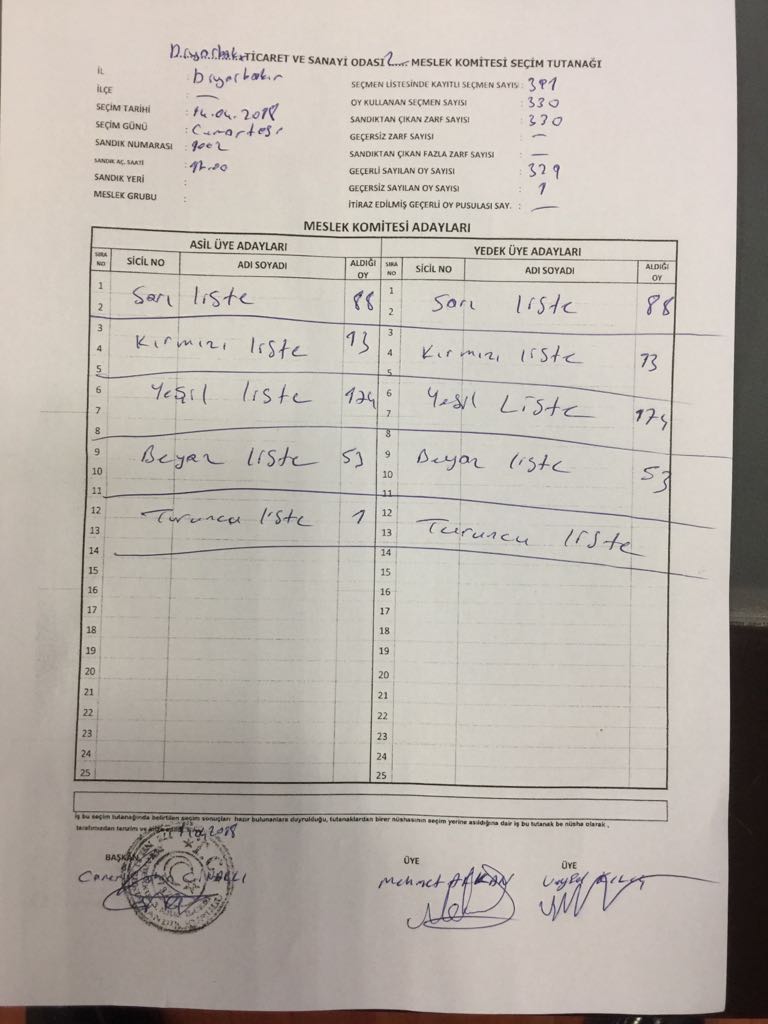 Diyarbakır TİCARET VE SANAYİ ODASI 2.... MESLEK KOMİTESİ SEÇİM TUTANAĞI
İL : Diyarbakır
İLÇE : —
SEÇİM TARİHİ : 14.04.2018
SEÇİM GÜNÜ : Cumartesi
SANDIK NUMARASI : 1002
SANDIK AÇ. SAATİ : 17.00
SANDIK YERİ :
MESLEK GRUBU :
SEÇMEN LİSTESİNDE KAYITLI SEÇMEN SAYISI : 391
OY KULLANAN SEÇMEN SAYISI : 330
SANDIKTAN ÇIKAN ZARF SAYISI : 330
GEÇERSİZ ZARF SAYISI : —
SANDIKTAN ÇIKAN FAZLA ZARF SAYISI : —
GEÇERLİ SAYILAN OY SAYISI : 329
GEÇERSİZ SAYILAN OY SAYISI : 1
İTİRAZ EDİLMİŞ GEÇERLİ OY PUSULASI SAY. : —
MESLEK KOMİTESİ ADAYLARI
ASİL ÜYE ADAYLARI YEDEK ÜYE ADAYLARI
SIRA NO SİCİL NO ADI SOYADI ALDIĞI OY SIRA NO SİCİL NO ADI SOYADI ALDIĞI OY
1 1
Sarı liste 88 Sarı liste 88
2 2
3 3
Kırmızı liste 13 Kırmızı liste 13
4 4
5 5
6 6
Yeşil liste 174 Yeşil Liste 174
7 7
8 8
9 9
Beyaz liste 53 Beyaz liste 53
10 10
11 11
12 12
Turuncu liste 1 Turuncu liste
13 13
14 14
15 15
16 16
17 17
18 18
19 19
20 20
21 21
22 22
23 23
24 24
25 25
iş bu seçim tutanağında belirtilen seçim sonuçları hazır bulunanlara duyrulduğu, tutanaklardan birer nüshasının seçim yerine asıldığına dair iş bu tutanak be nüsha olarak ,
tarafımızdan tanzim ve 2018
BAŞKAN ÜYE ÜYE
Mehmet ARKAN Veysel KILIÇ
T.C.